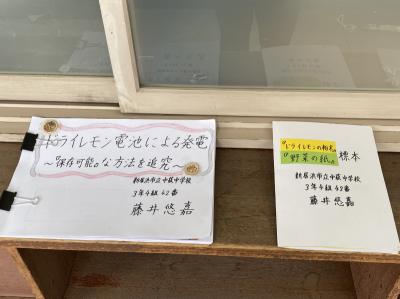 ドライレモン電池による発電
～『保存可能』な方法を追究～
新居浜市立中萩中学校
3年4組42番
藤井悠嘉
『ドライレモンの粉末』
『野菜の紙』標本
新居浜市立中萩中学校
3年4組42番
藤井悠嘉